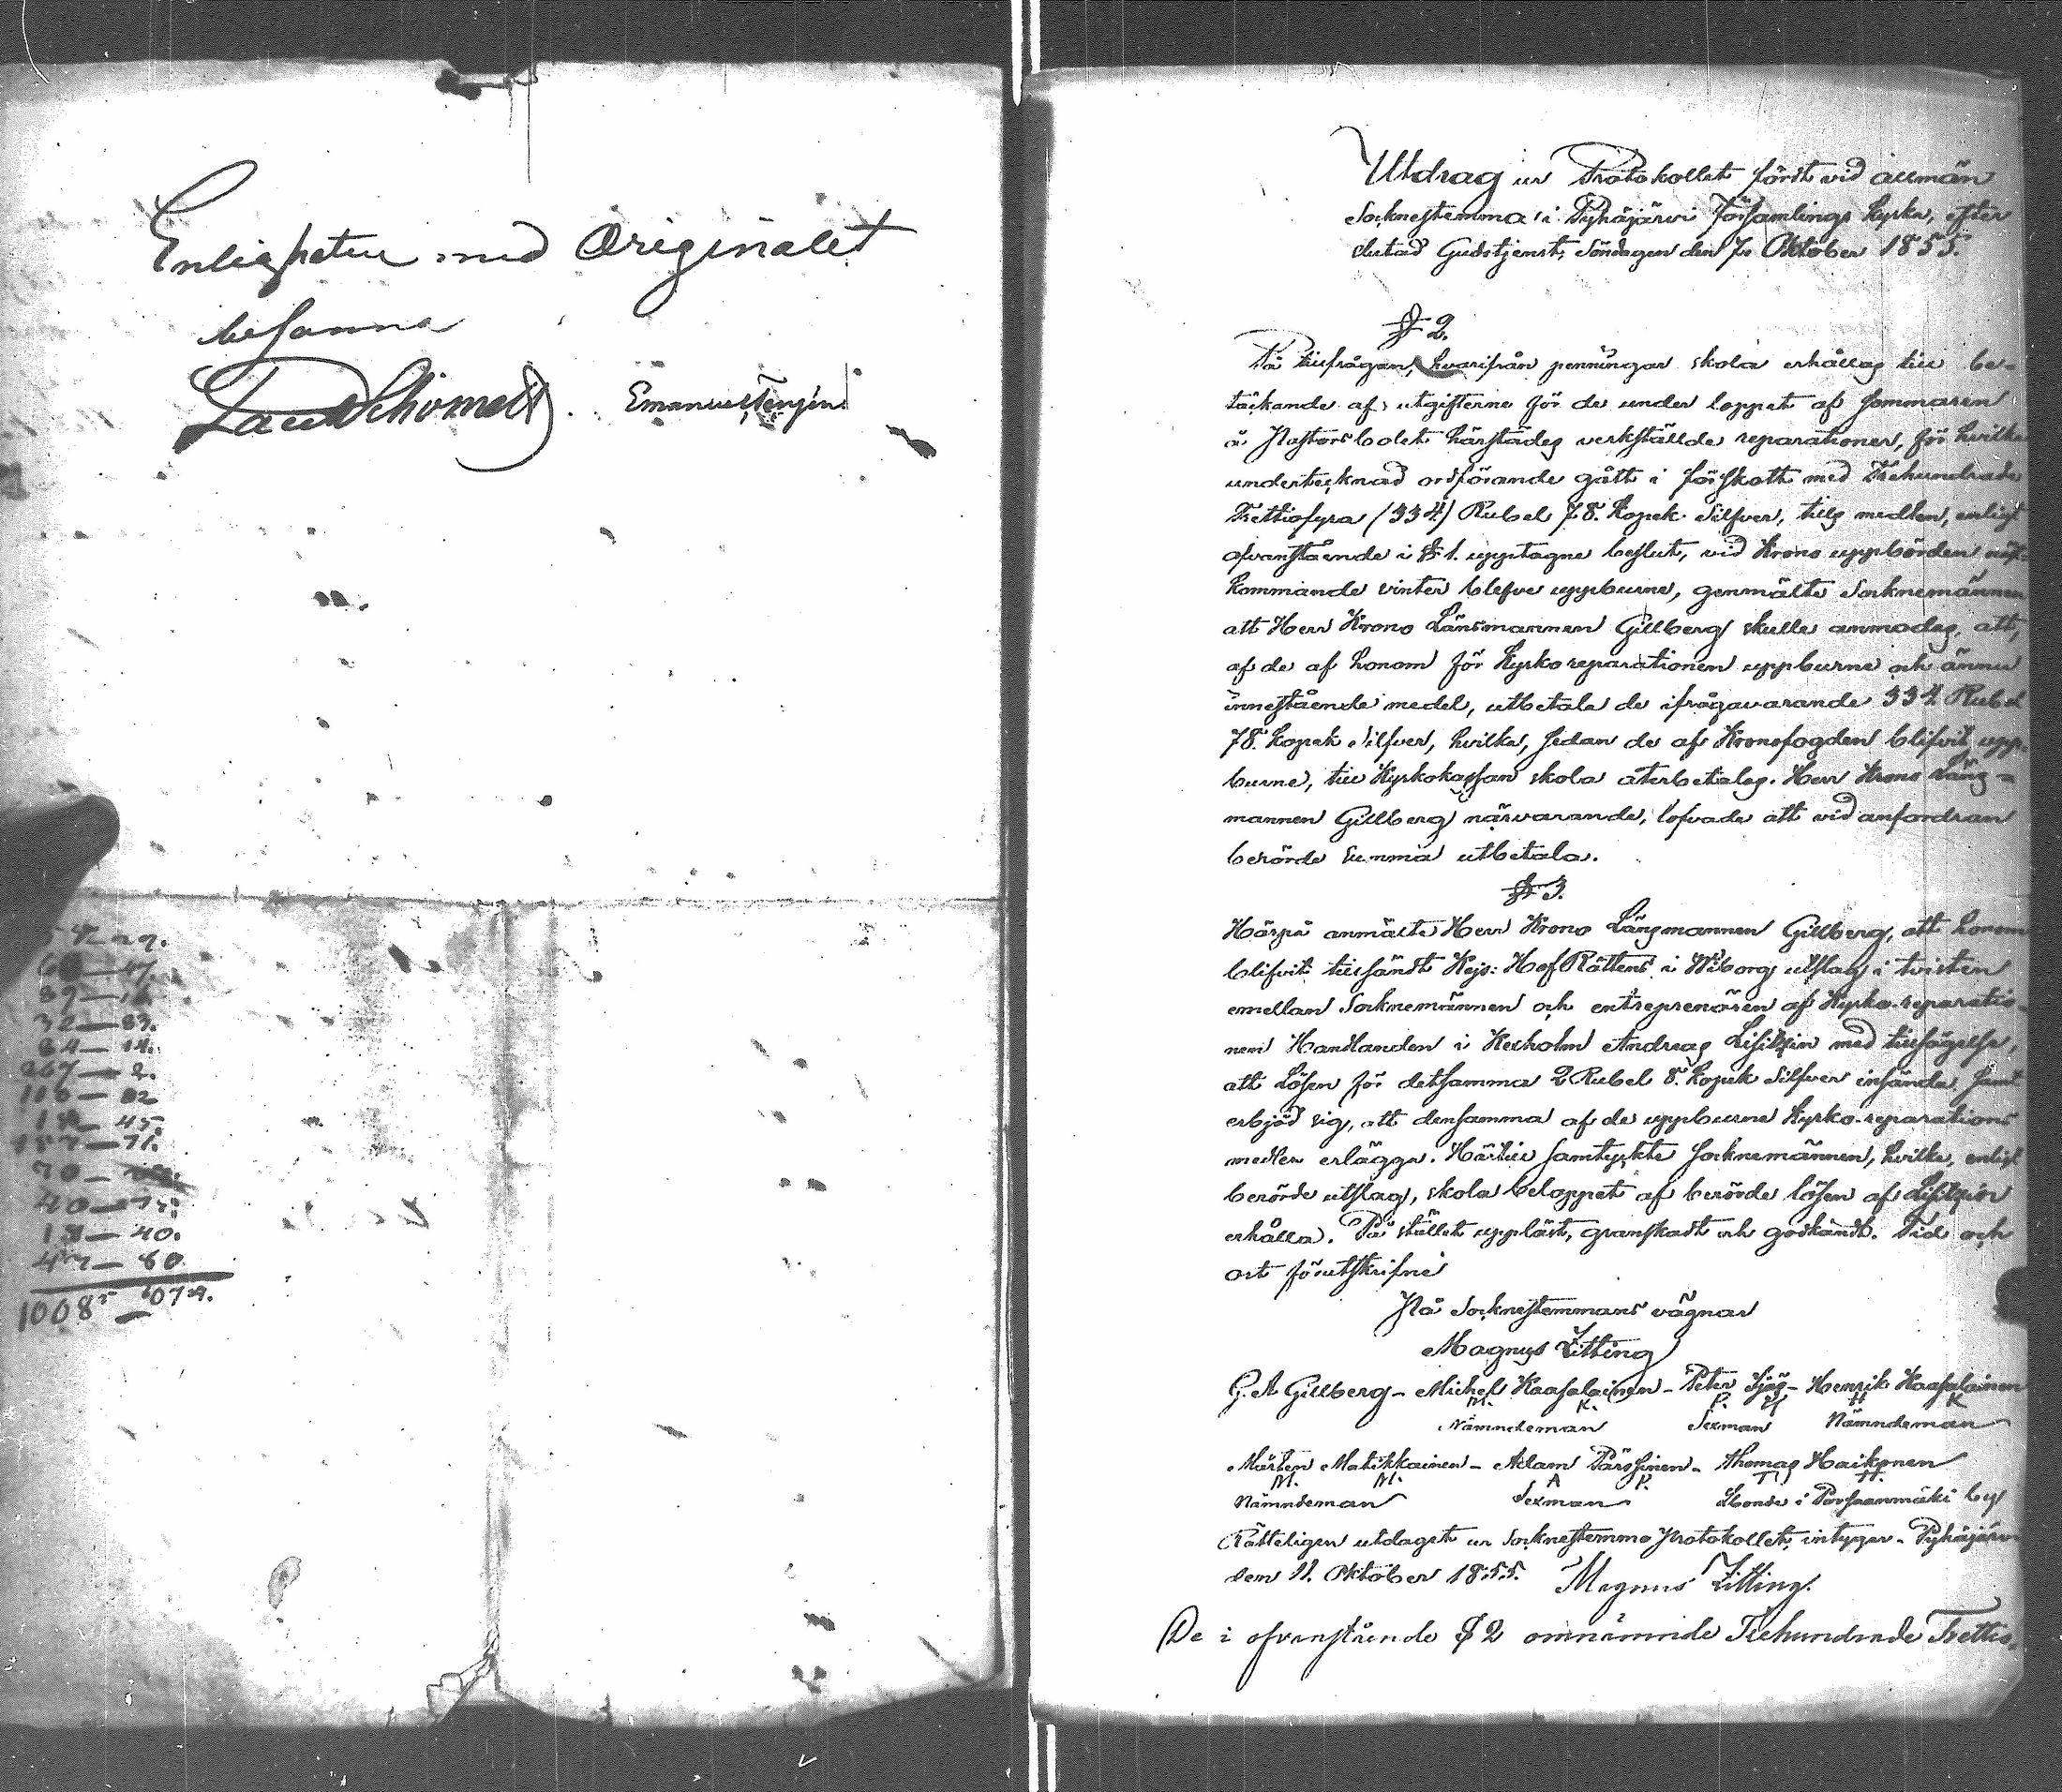 Enligheten med Originalet
besanna
Emanuel Tengén
89—
32—83.
84—14.
267—2.
100—82
18—45.
187—71.
70—
40—
18—40.
47—60.
1008
Utdrag ur Protokollet fördt vid allmän
Socknestemma i Pyhäjärvi Församlings kyrka, efter
slutad Gudstjenst, Söndagen den 7. Oktober 1855.
§ 2.
På tillfrågan, hvarifrån penningar skola erhållas till be-
täckande af utgifterne för de under loppet af sommaren
å Pastorsbolet härstädes verkställde reparationer, för hvilka
undertecknad ordförande gått i förskott med Trehundrade
Trettiofyra (334) Rubel 78. Kopek Silfver, tills medlen, enligt
ofvanstående i § 1. upptagne beslut, vid Krono uppbörden näst-
kommande vinter blefve uppburne, genmälte Socknemännen
att Herr Krono Länsmannen Gillberg skulle anmodas, att,
af de af honom för Kyrko reparationen uppburne och ännu
innestående medel, utbetala de ifrågavarande 334 Rubel
78. Kopek Silfver, hvilka, sedan de af Kronofogden blifvit upp-
burne, till Kyrkokassan skola återbetalas. Herr Krono Läns-
mannen Gillberg närvarande, lofvade att vid anfordran
berörde summa utbetala.
§ 3.
Härpå anmälte Herr Krono Länsmannen Gillberg, att honom
blifvit tillsändt Kejs: Hof Rättens i Wiborg utslag i tvisten
emellan Socknemännen och entreprenören af Kyrko-reparatio-
nen Handlanden i Kexholm Andreas Lisitzin med tillsägelse,
att Lösen för detsamma 2 Rubel 8. Kopek Silfver insända, samt
erbjöd sig, att densamma af de uppburne Kyrko-reparations
medlen erlägga. Härtill samtyckte socknemännen, hvilka, enligt
berörde utslag, skola beloppet af berörde lösen af Lisitzin
erhålla. På stället uppläst, granskadt och godkändt. Tid och
ort förutskrifne
På Socknestemmans vägnar
Magnus Zitting
G. A Gillberg – Michel Kaasalainen – Peter Ijäs – Henrik Kaasalainen
M. K. P. I H K
Nämndeman Sexman Nämndeman
Mårten Matikkainen – Adam Pärssinen – Thomas Haikonen
M. M. A P. T. H.
Nämndeman Sexman Bonde i Porsaanmäki by
Rätteligen utdraget ur Socknestemmo Protokollet, intygar. Pyhäjärvi
den 11. Oktober 1855. Magnus Zitting.
De i ofvanstående § 2 omnämnde Trehundrade Trettio